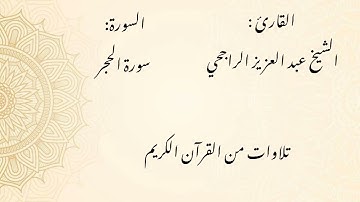 القارئ : السورة:
الشيخ عبد العزيز الراجحي سورة الحجر
تلاوات من القرآن الكريم